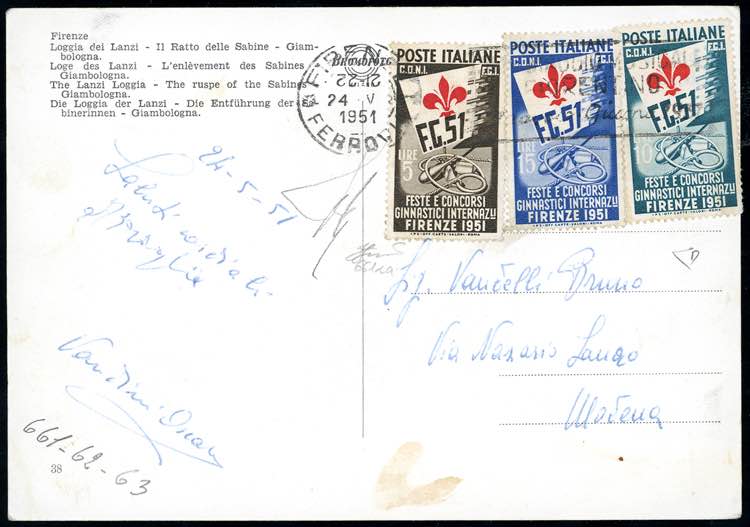 Firenze
Loggia dei Lanzi - Il Ratto delle Sabine - Giam-
bologna.
Loge des Lanzi - L'enlèvement des Sabines
Giambologna.
The Lanzi Loggia - The ruspe of the Sabines
Giambologna.
Die Loggia der Lanzi - Die Entführung der
binerinnen - Giambologna.
FIRENZE
24 V
1951
FERROV
POSTE ITALIANE
C.O.N.I. F.G.I.
F.G.51
LIRE 5
FESTE E CONCORSI
GINNASTICI INTERNAZLI
FIRENZE 1951
I.P.S.-OFF. CARTE-VALORI-ROMA
POSTE ITALIANE
C.O.N.I.
F.G.51
LIRE 15
FESTE E CONCORSI
GINNASTICI INTERNAZLI
FIRENZE 1951
I.P.S.-OFF. CARTE-VALORI-ROMA
POSTE ITALIANE
C.O.N.I. F.G.I.
F.G.51
10
FESTE E CONCORSI
GINNASTICI INTERNAZLI
FIRENZE 1951
I.P.S.-OFF. CARTE-VALORI-ROMA
24-5-51
Saluti cordiali
Sig. Vancelli Bruno
Via Nazario Sauro
Modena
661-62-63
38